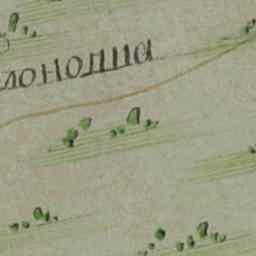 лонодпа